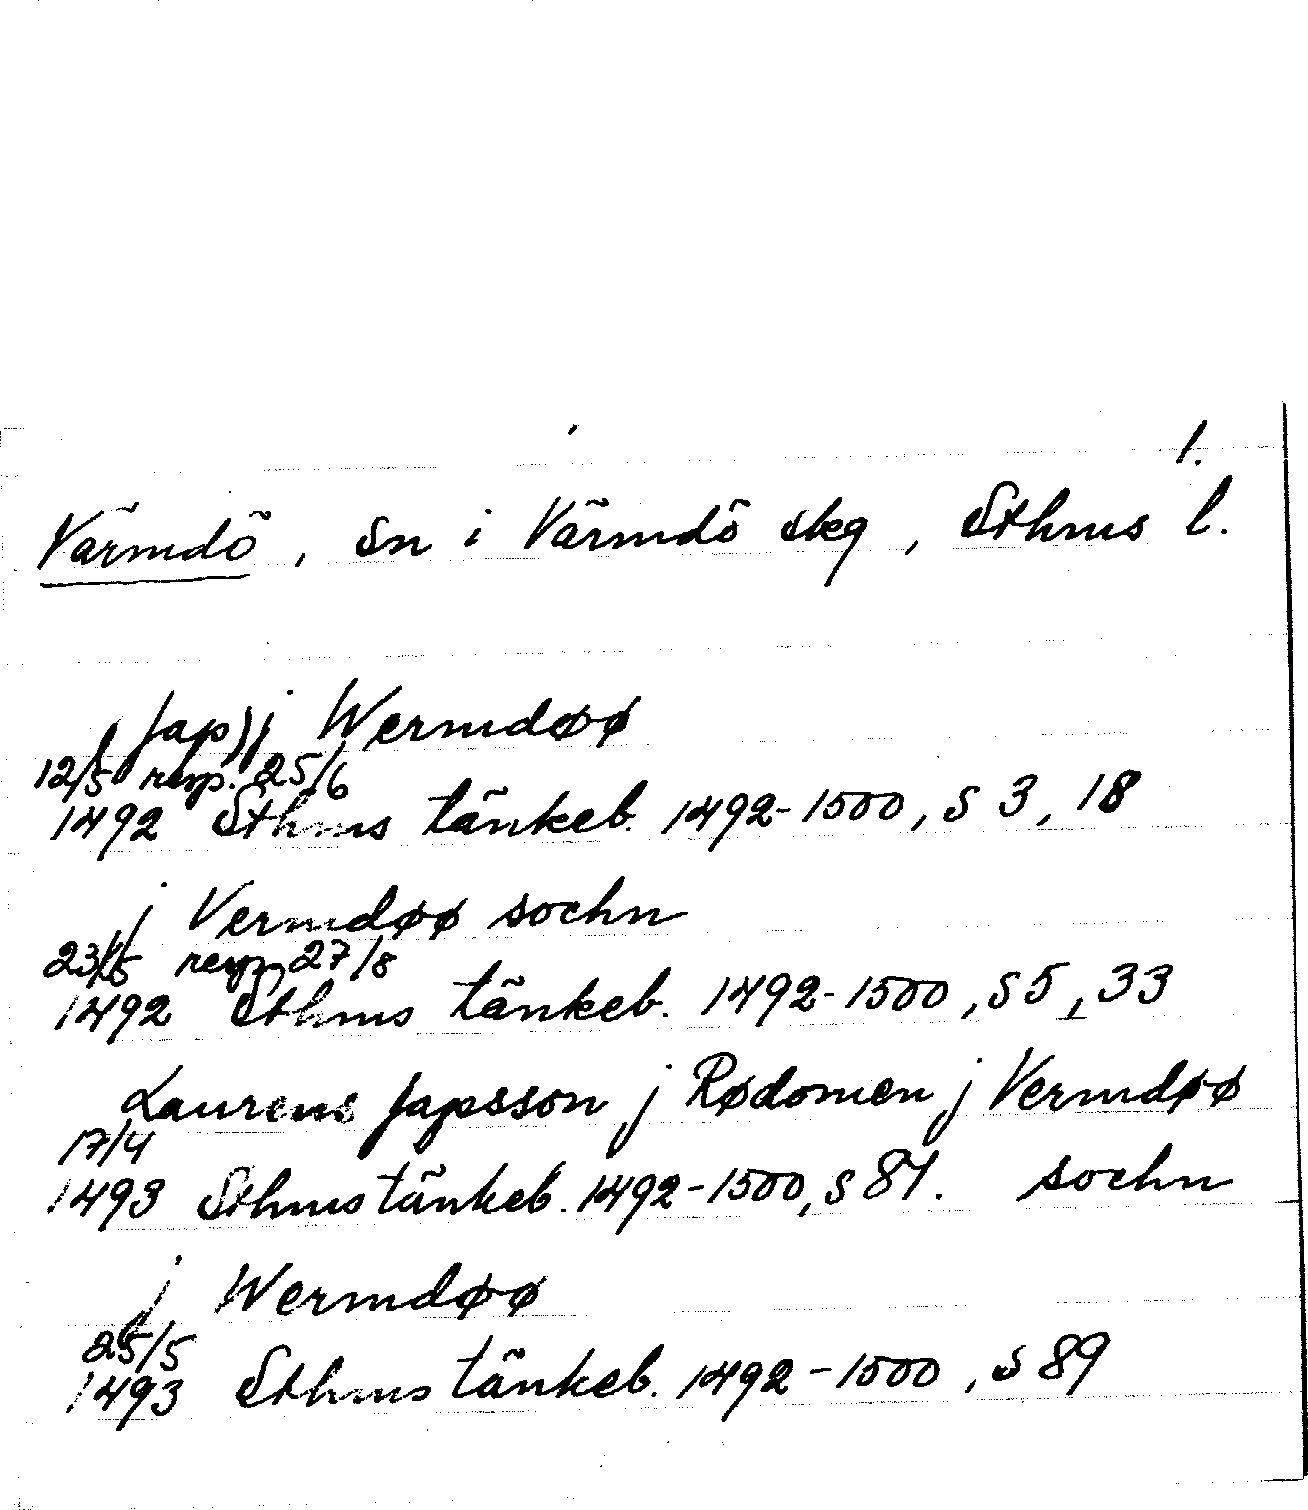 1.
Värmdö, Sn i Värmdö skg, Sthms l.
(Jap) j Wermdøø
12/5 resp. 25/6
1492 Sthms tänkeb. 1492-1500, s 3, 18
j Vermdøø sochn
23/5 resp. 27/8
1492 Sthms tänkeb. 1492-1500, s 5, 33
Laurens Japsson j Rødomen j Vermdøø
17/4
1493 Sthms tänkeb. 1492-1500, s 81. sochn
j Wermdøø
25/5
1493 Sthms tänkeb. 1492-1500, s 89